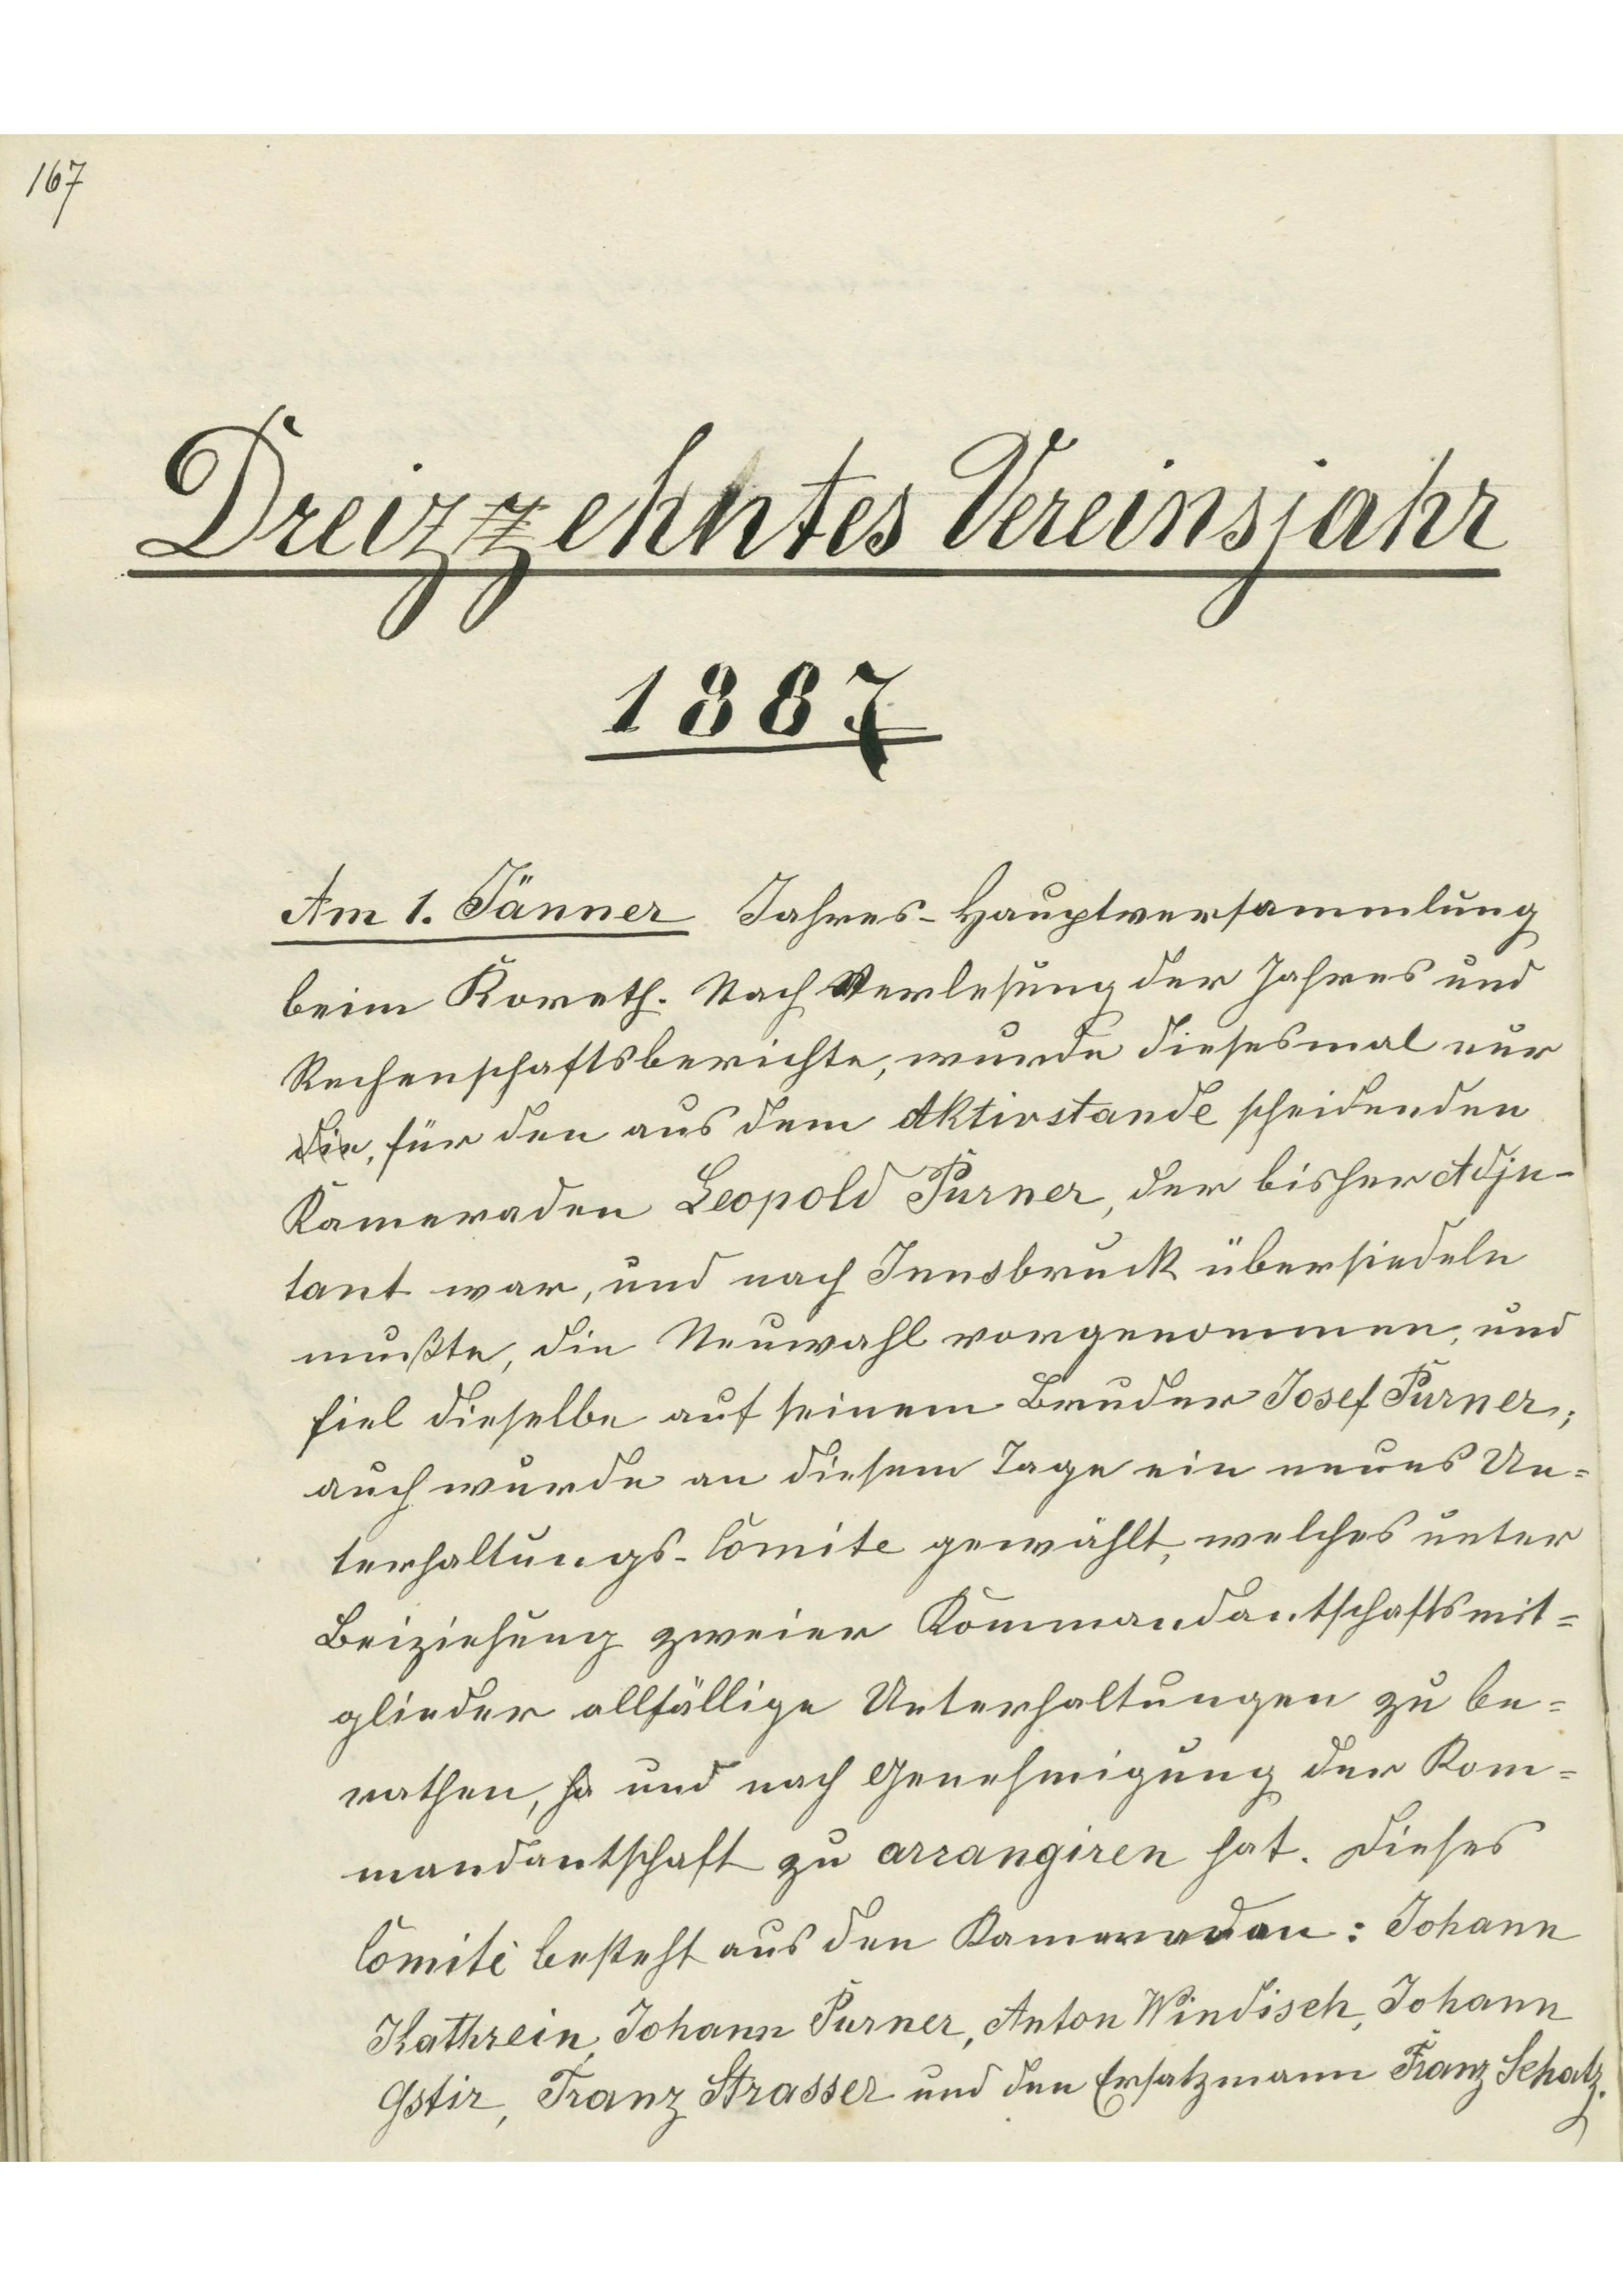 167
Dreizzehntes Vereinsjahr
1887
Am 1. Jänner Jahres-Hauptversammlung
beim Koreth. Nach Verlesung der Jahres und
Rechenschaftsberichte, wurde diesesmal nur
die, für den aus dem Aktivstande scheidenden
Kameraden Leopold Purner, der bisher Adju-
tant war, und nach Innsbruck übersiedeln
mußte, die Neuwahl vorgenommen, und
fiel dieselbe auf seinem Bruder Josef Purner;
auch wurde an diesem Tage ein neues Un=
terhaltungs-Comite gewählt, welches unter
Beiziehung zweier Kommandantschaftsmit=
glieder allfällige Unterhaltungen zu be=
rathen, ha und nach Genehmigung der Kom=
mandantschaft zu arrangiren hat. Dieses
Comité besteht aus den Kameraden: Johann
Kathrein, Johann Purner, Anton Windisch, Johann
Gstir, Franz Strasser und den Ersatzmann Franz Schatz.